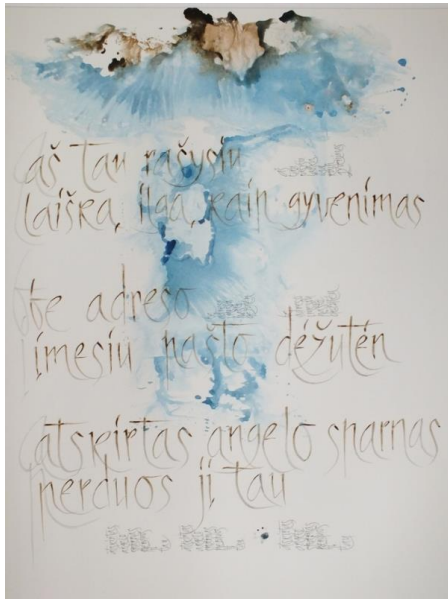 aš tau rašysiu
laišką ilgą kaip gyvenimas
be adreso
įmesiu pašto dėžutėn
atskirtas angelo sparnas
perduos jį tau